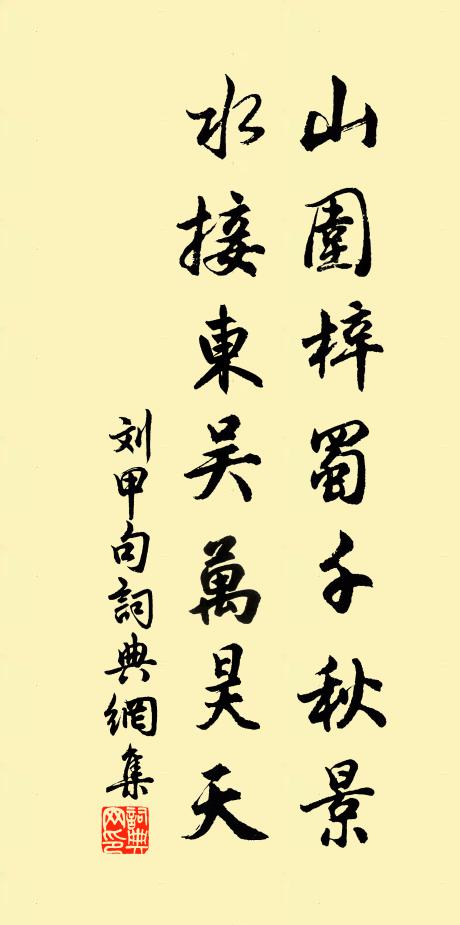 山圍梓蜀千秋景
水接東吴萬昊天
刘甲句詞典網集
詞典網印